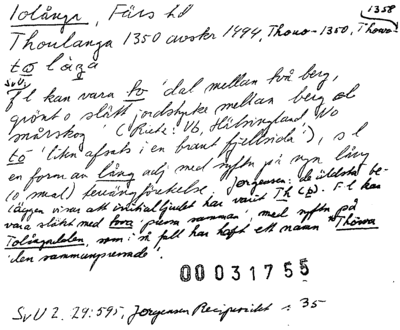 Tolånga, Färs hd
1358
Thoulanga 1350 avskr 1494, Thouo- 1350, Thowo-
tō låga
SvU
F l kan vara tō 'dal mellan två berg,
grönt o slätt jordstycke mellan berg ol
mårskog' (Rietz: Vb, Hälsingland, No
tō 'liten afsats i en brant fjellsida'), s l
en form av lång adj med syftn på ngn lång
(o smal) terrängföreteelse. Jorgensen: de äldsta be-
läggen visar att initialljudet har varit Th (þ). F l kan
vara släkt med tova pressa samman', med syftn på
Tolångadalen, som i så fall har haft ett namn *Thowa
'den sammanpressade'.
00031755
SvU 2. 29:595, Jorgensen Reciprocitet s 35